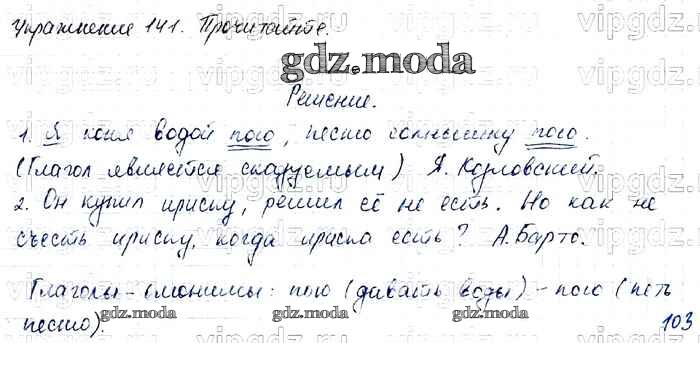 Упражнение 141. Прочитайте.
gdz.moda
Решение.
1. Я коня водой пою, песню солнышку пою.
(Глагол является сказуемым) Я. Козловский.
2. Он купил ириску, решил её не есть. Но как не
съесть ириску, когда ириска есть? А. Барто.
Глаголы-омонимы: пою (давать воды) - пою (петь
песню).
gdz.moda gdz.moda gdz.moda
103